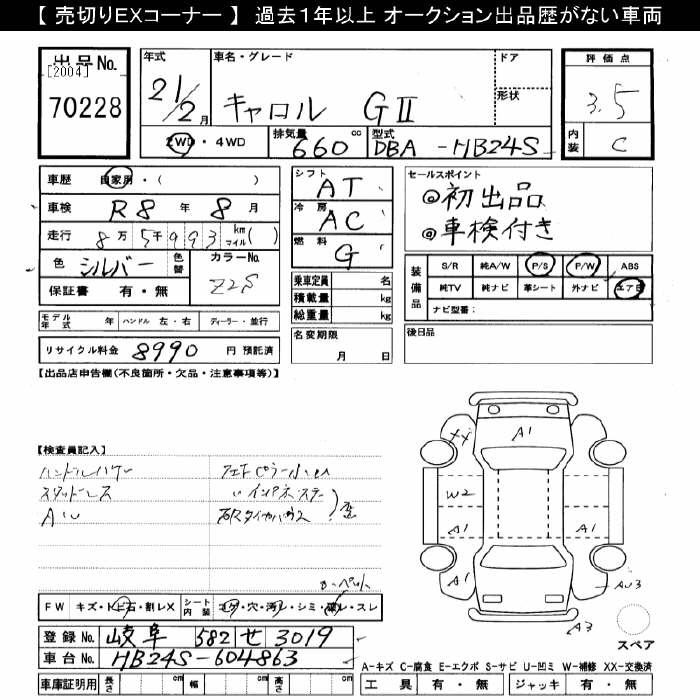 【 売切りEXコーナー 】 過去１年以上 オークション出品歴がない車両
出品No.
[2004]
70228
年式 21/2月
車名・グレード キャロル GⅡ
ドア
形状
2WD・4WD 排気量 660 cc 型式 DBA-HB24S
評価点
3.5
内装 C
車歴 自家用・( )
車検 R8 年 8 月
走行 8万 5千 9 9 3 km マイル( )
色 シルバー 色替 カラーNo. Z2S
保証書 有・無
シフト AT
冷房 AC
燃料 G
乗車定員 名
積載量 kg
総重量 kg
セールスポイント
◎初出品
◎車検付き
装備品 S/R 純A/W P/S P/W ABS
純TV 純ナビ 革シート 外ナビ エアB
ナビ型番:
モデル年式 年 ハンドル 左・右 ディーラー・並行
リサイクル料金 8990 円 預託済
名変期限
月 日
後日品
【出品店申告欄(不良箇所・欠品・注意事項等)】
【検査員記入】
スタッドレス
AW
A1
XX
W2
A1
A1
A1
AU3
A3
FW キズ・トビ石・割レX シート内装 コゲ・穴・汚レ・シミ・破レ・スレ
登録No. 岐阜 582 せ 3019
車台No. HB24S-604863
車庫証明用 長さ cm 幅 cm 高さ cm
スペア
A-キズ C-腐食 E-エクボ S-サビ U-凹ミ W-補修 XX-交換済
工具 有・無 ジャッキ 有・無